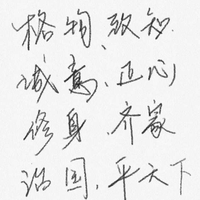 格物、致知
诚意、正心
修身、齐家
治国、平天下